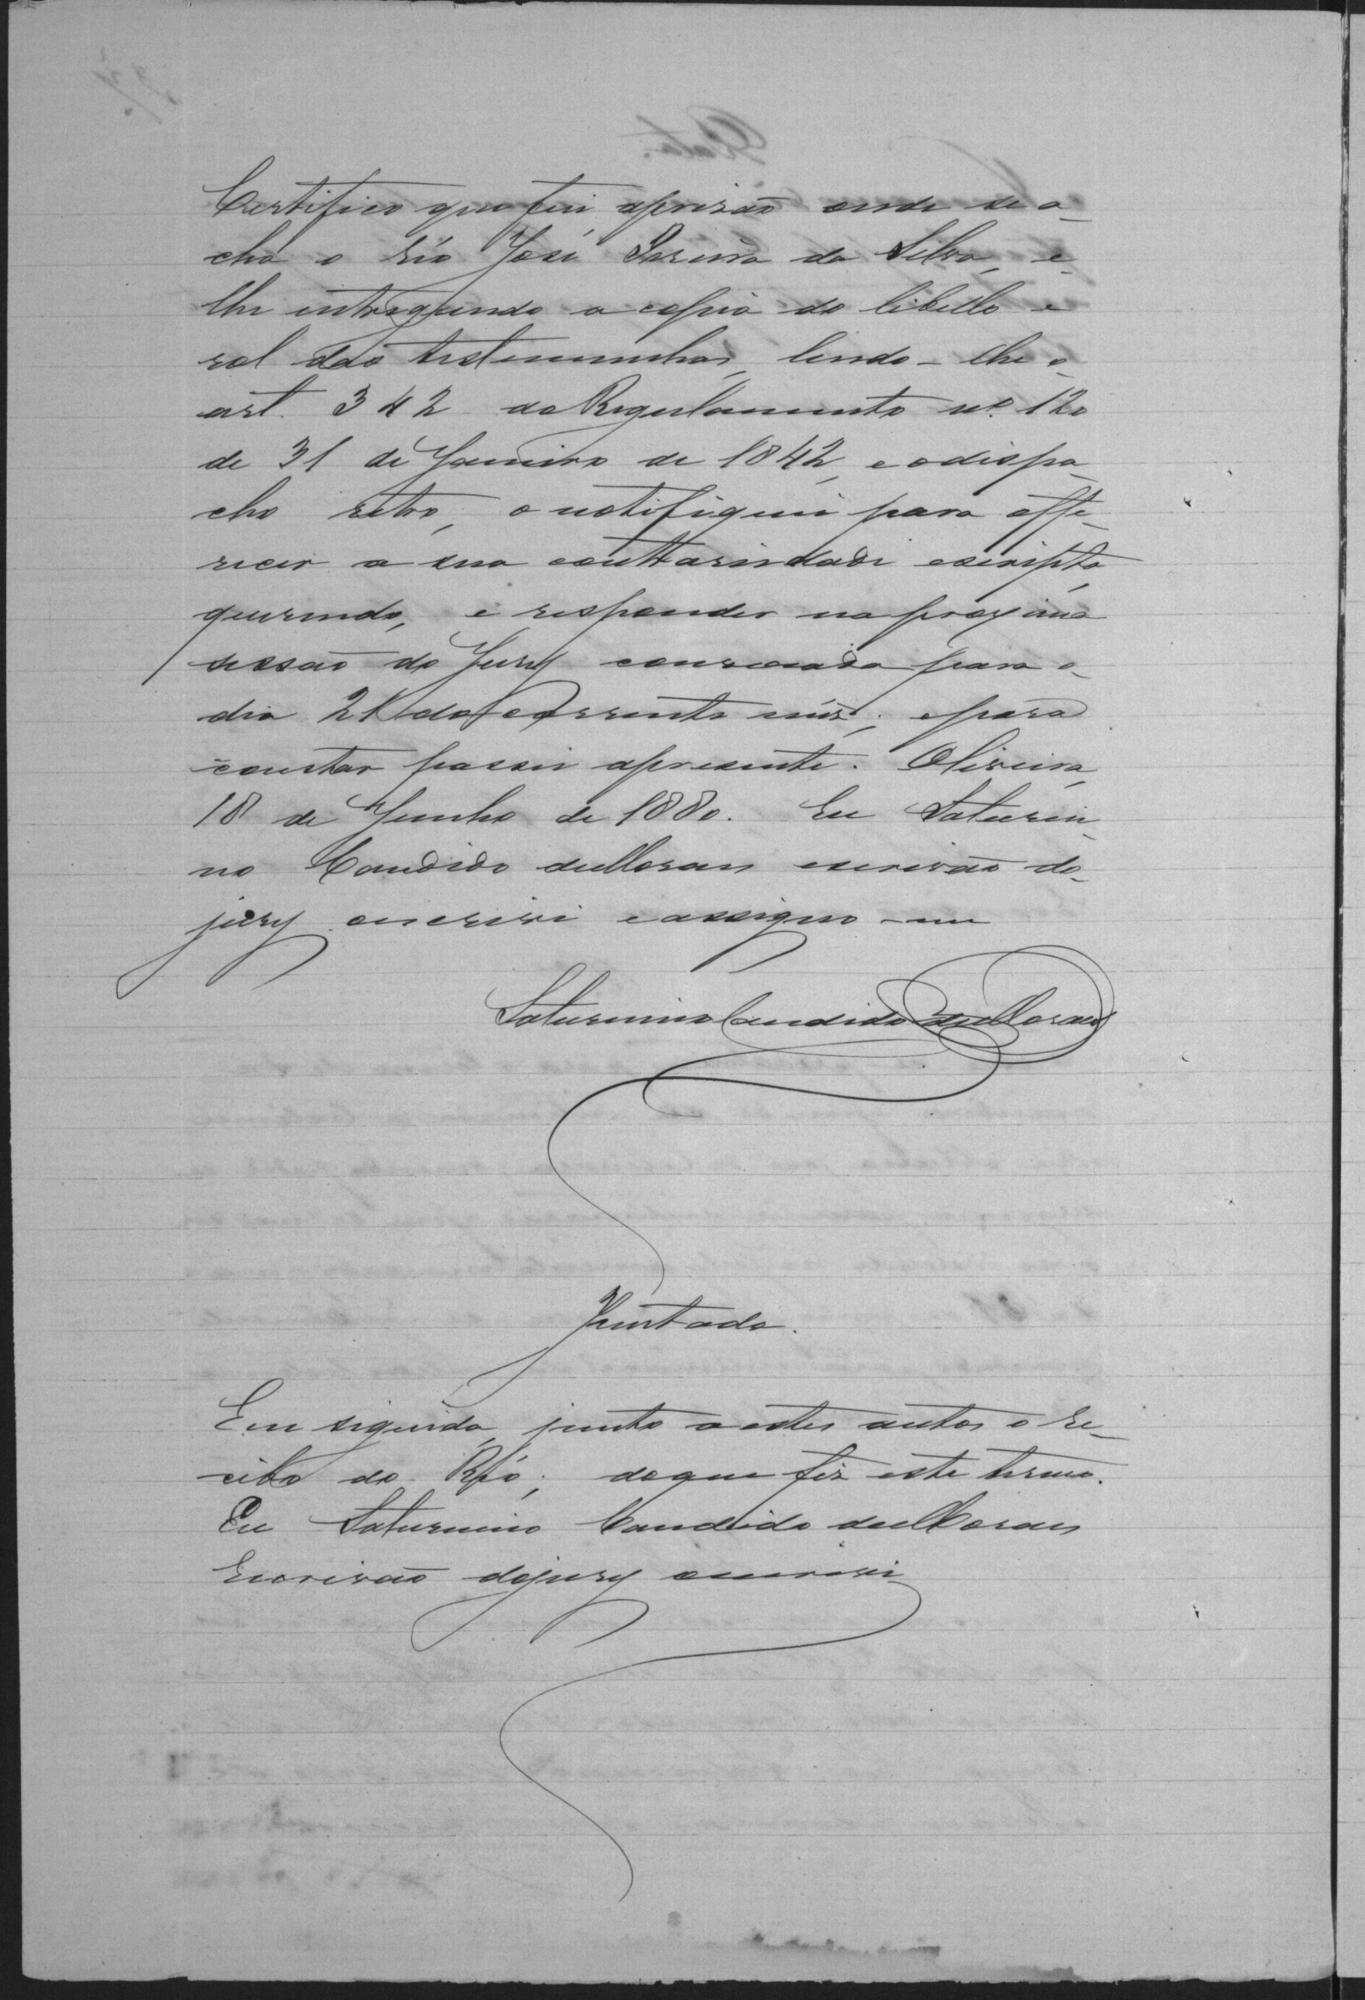 Certifico que fui aprisão onde se a-
cha o réo José Pereira da Silva, e
lhe entreguando a copia do libello e
rol das testemunhas, lendo-lhe o
art. 342 do Regulamento nº 120
de 31 de Janeiro de 1842, e o dispa-
cho retro, o notifiquei para offe-
recer a sua contrariedade escripta,
querendo, e responder na proxima
sessão do Jury convocada para o
dia 21 do corrente mês; e para
constar passei apresente. Oliveira,
18 de Junho de 1880. Eu Saturni-
no Candido de Moraes escrivão do
jury escrevi e assigno-me
Saturnino Candido de Moraes
Juntada.
Em siguida, junto a estes autos o re-
cibo do Réo; do que fiz este termo.
Eu Saturnino Candido de Moraes
Escrivão do jury escrevi